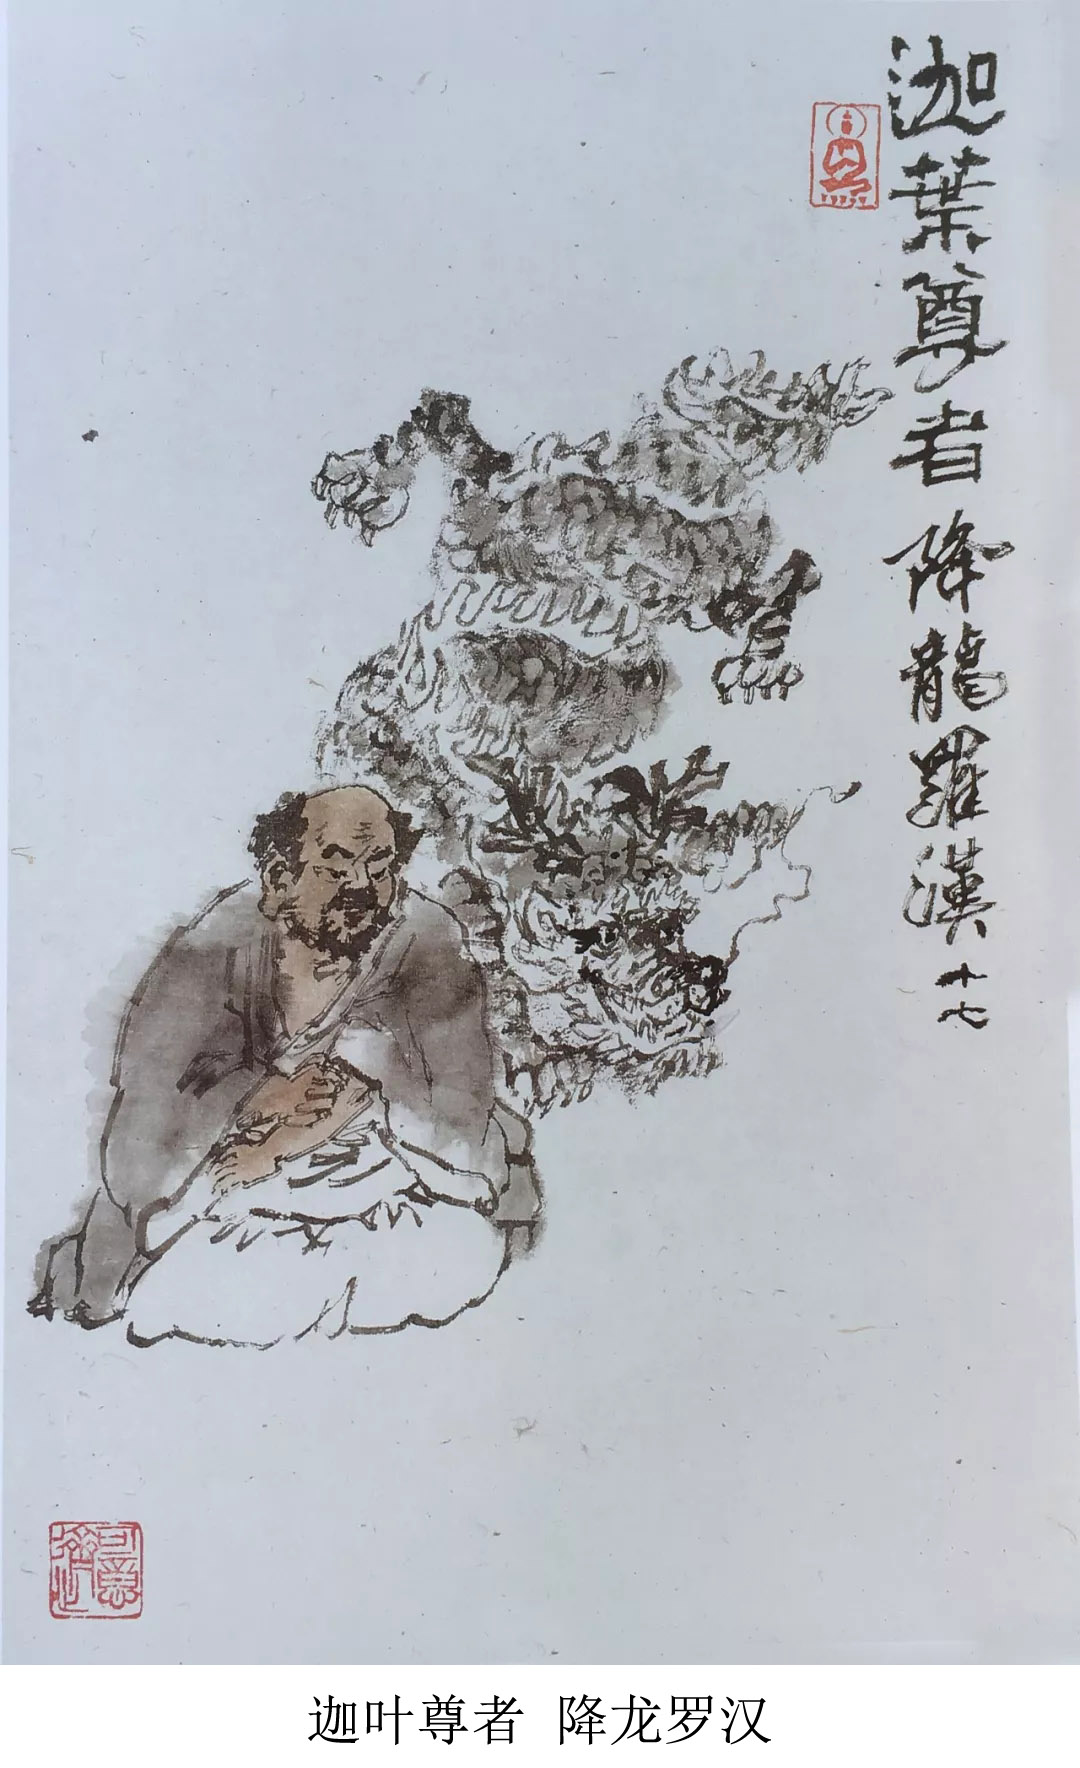 迦葉尊者 降龍羅漢 十七
迦叶尊者 降龙罗汉